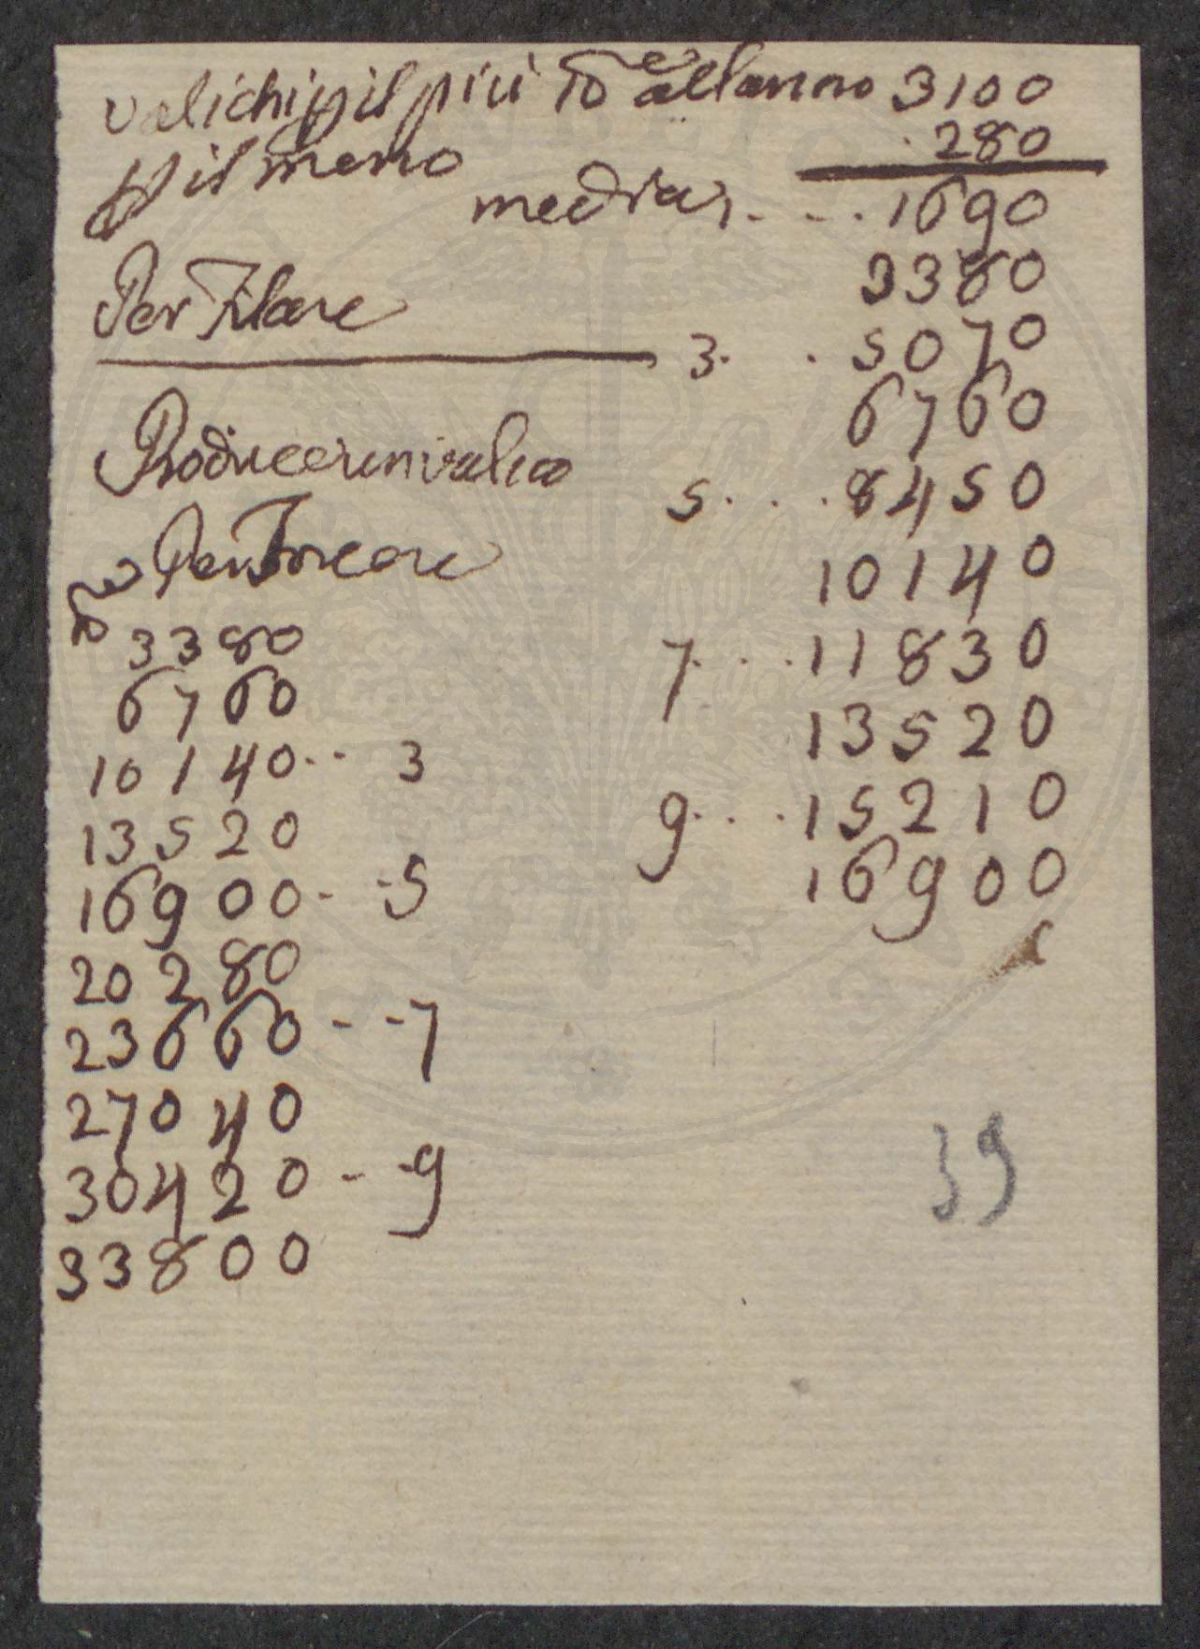 valichi p il più lb e all anno 3100
p il meno 280
media, - - - . 1690
3380
Per Filare
3. . 5070
6760
Produce un valico
5 . . . 8450
Per Torcere
10140
lb
3380
7. . . . 11830
6760
13520
10140 . . 3
9 . . . . 15210
13520
16900
16900 - - 5
20280
23660 - - 7
27040
30420 - - 9
33800
39